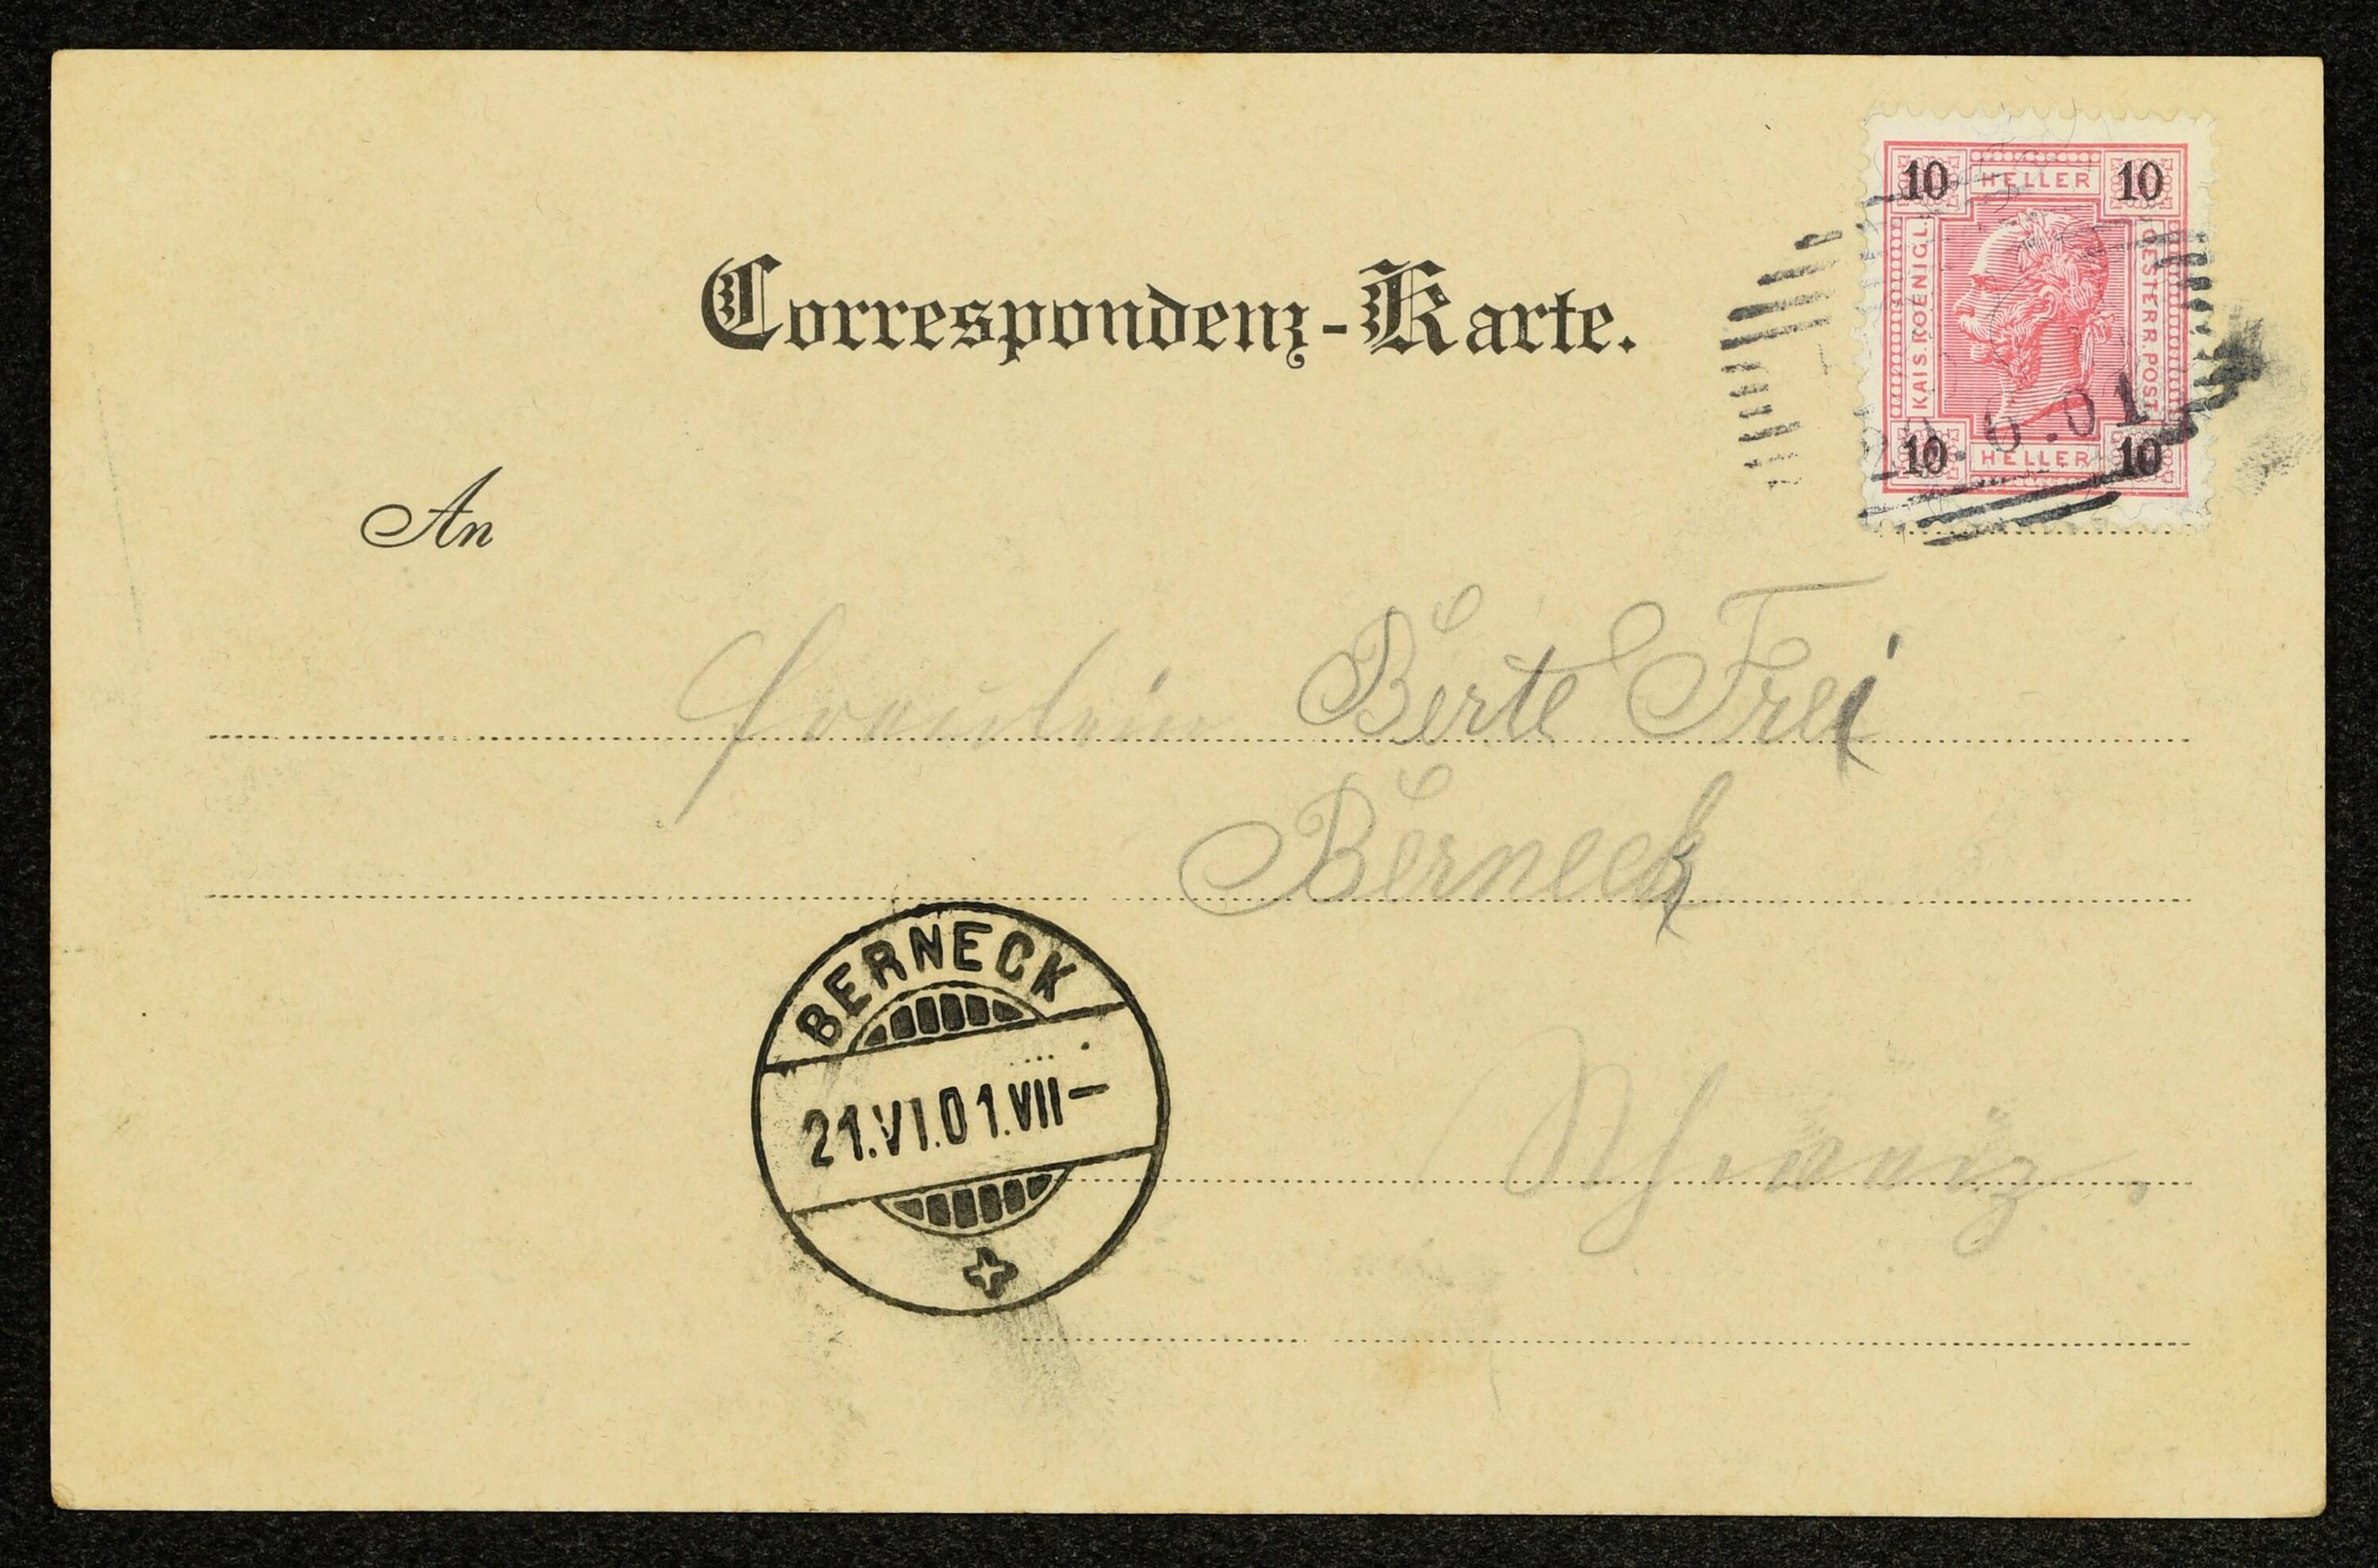 Correspondenz-Karte.
10 HELLER 10
KAIS. KOENIGL.
OESTERR. POST
10 HELLER 10
6.01
An
Fräulein Berte Frei
Berneck
Schweiz.
BERNECK
21.VI.01.VII–